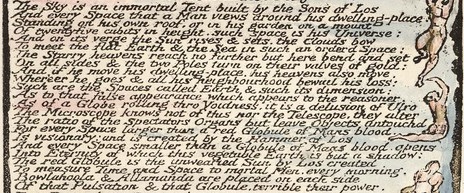 The Sky is an immortal Tent built by the Sons of Los
And every Space that a Man views around his dwelling-place
Standing on his own roof, or in his garden on a mount
Of twentyfive cubits in height, such Space is his Universe:
And on its verge the Sun rises & sets, the Clouds bow
To meet the flat Earth & the Sea in such an orderd Space:
The Starry heavens reach no further but here bend and set
On all sides & the two Poles turn on their valves of gold:
And if he move his dwelling-place, his heavens also move.
Wherever he goes & all his neighbourhood bewail his loss:
Such are the Spaces called Earth & such its dimension:
As to that false appearance which appears to the reasoner,
As of a Globe rolling thro Voidness, it is a delusion of Ulro
The Microscope knows not of this nor the Telescope, they alter
The ratio of the Spectators Organs but leave Objects untouchd
For every Space larger than a red Globule of Mans blood.
Is visionary: and is created by the Hammer of Los
And every Space smaller than a Globule of Mans blood. opens
Into Eternity of which this vegetable Earth is but a shadow:
The red Globule is the unwearied Sun by Los created
To measure Time and Space to mortal Men. every morning.
Bowlahoola & Allamanda are placed on each side
Of that Pulsation & that Globule, terrible their power.